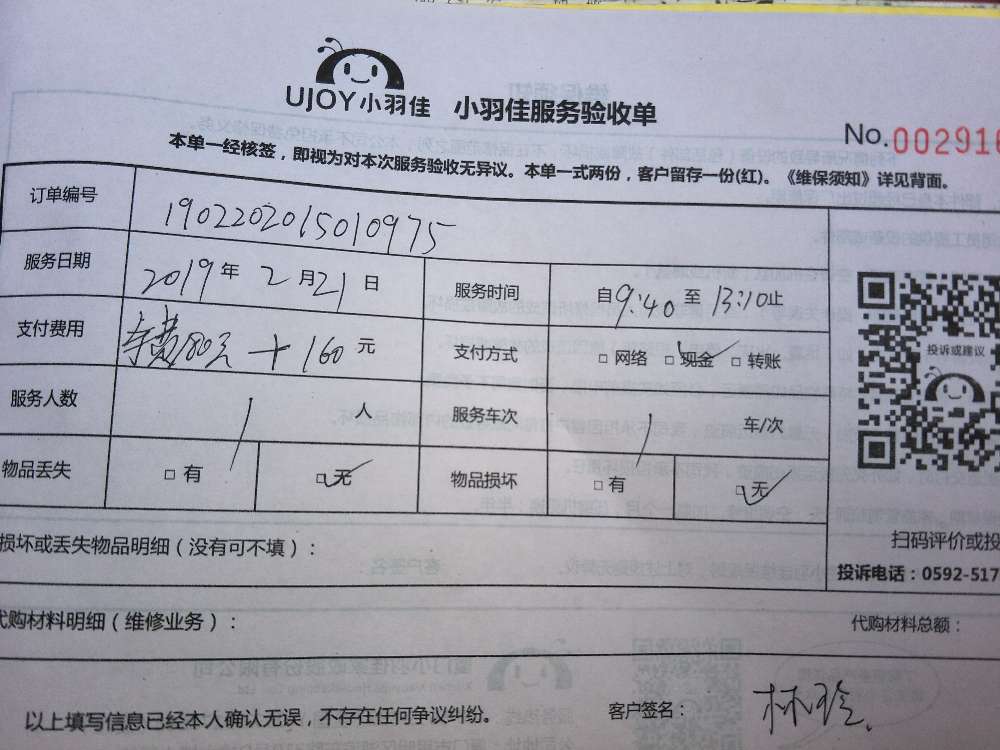 UJOY小羽佳 小羽佳服务验收单
No.002916
本单一经核签，即视为对本次服务验收无异议。本单一式两份，客户留存一份(红)。《维保须知》详见背面。
订单编号 19022020150109​75
服务日期 2019年2月21日 服务时间 自9:40至13:10止
支付费用 车费180元+160元 支付方式 □网络 ☑现金 □转账
服务人数 1人 服务车次 1车/次
物品丢失 □有 ☑无 物品损坏 □有 ☑无
投诉或建议
扫码评价或投
投诉电话：0592-517
损坏或丢失物品明细（没有可不填）：
代购材料明细（维修业务）： 代购材料总额：
以上填写信息已经本人确认无误，不存在任何争议纠纷。 客户签名：林玲